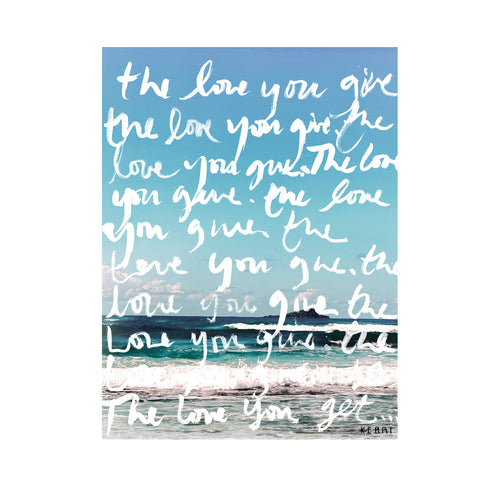 the love you give
the love you give. the
love you give. The love
you give. the love
you give. the
Love you give. the
love you give. the
Love you give. the
you
The love you get...